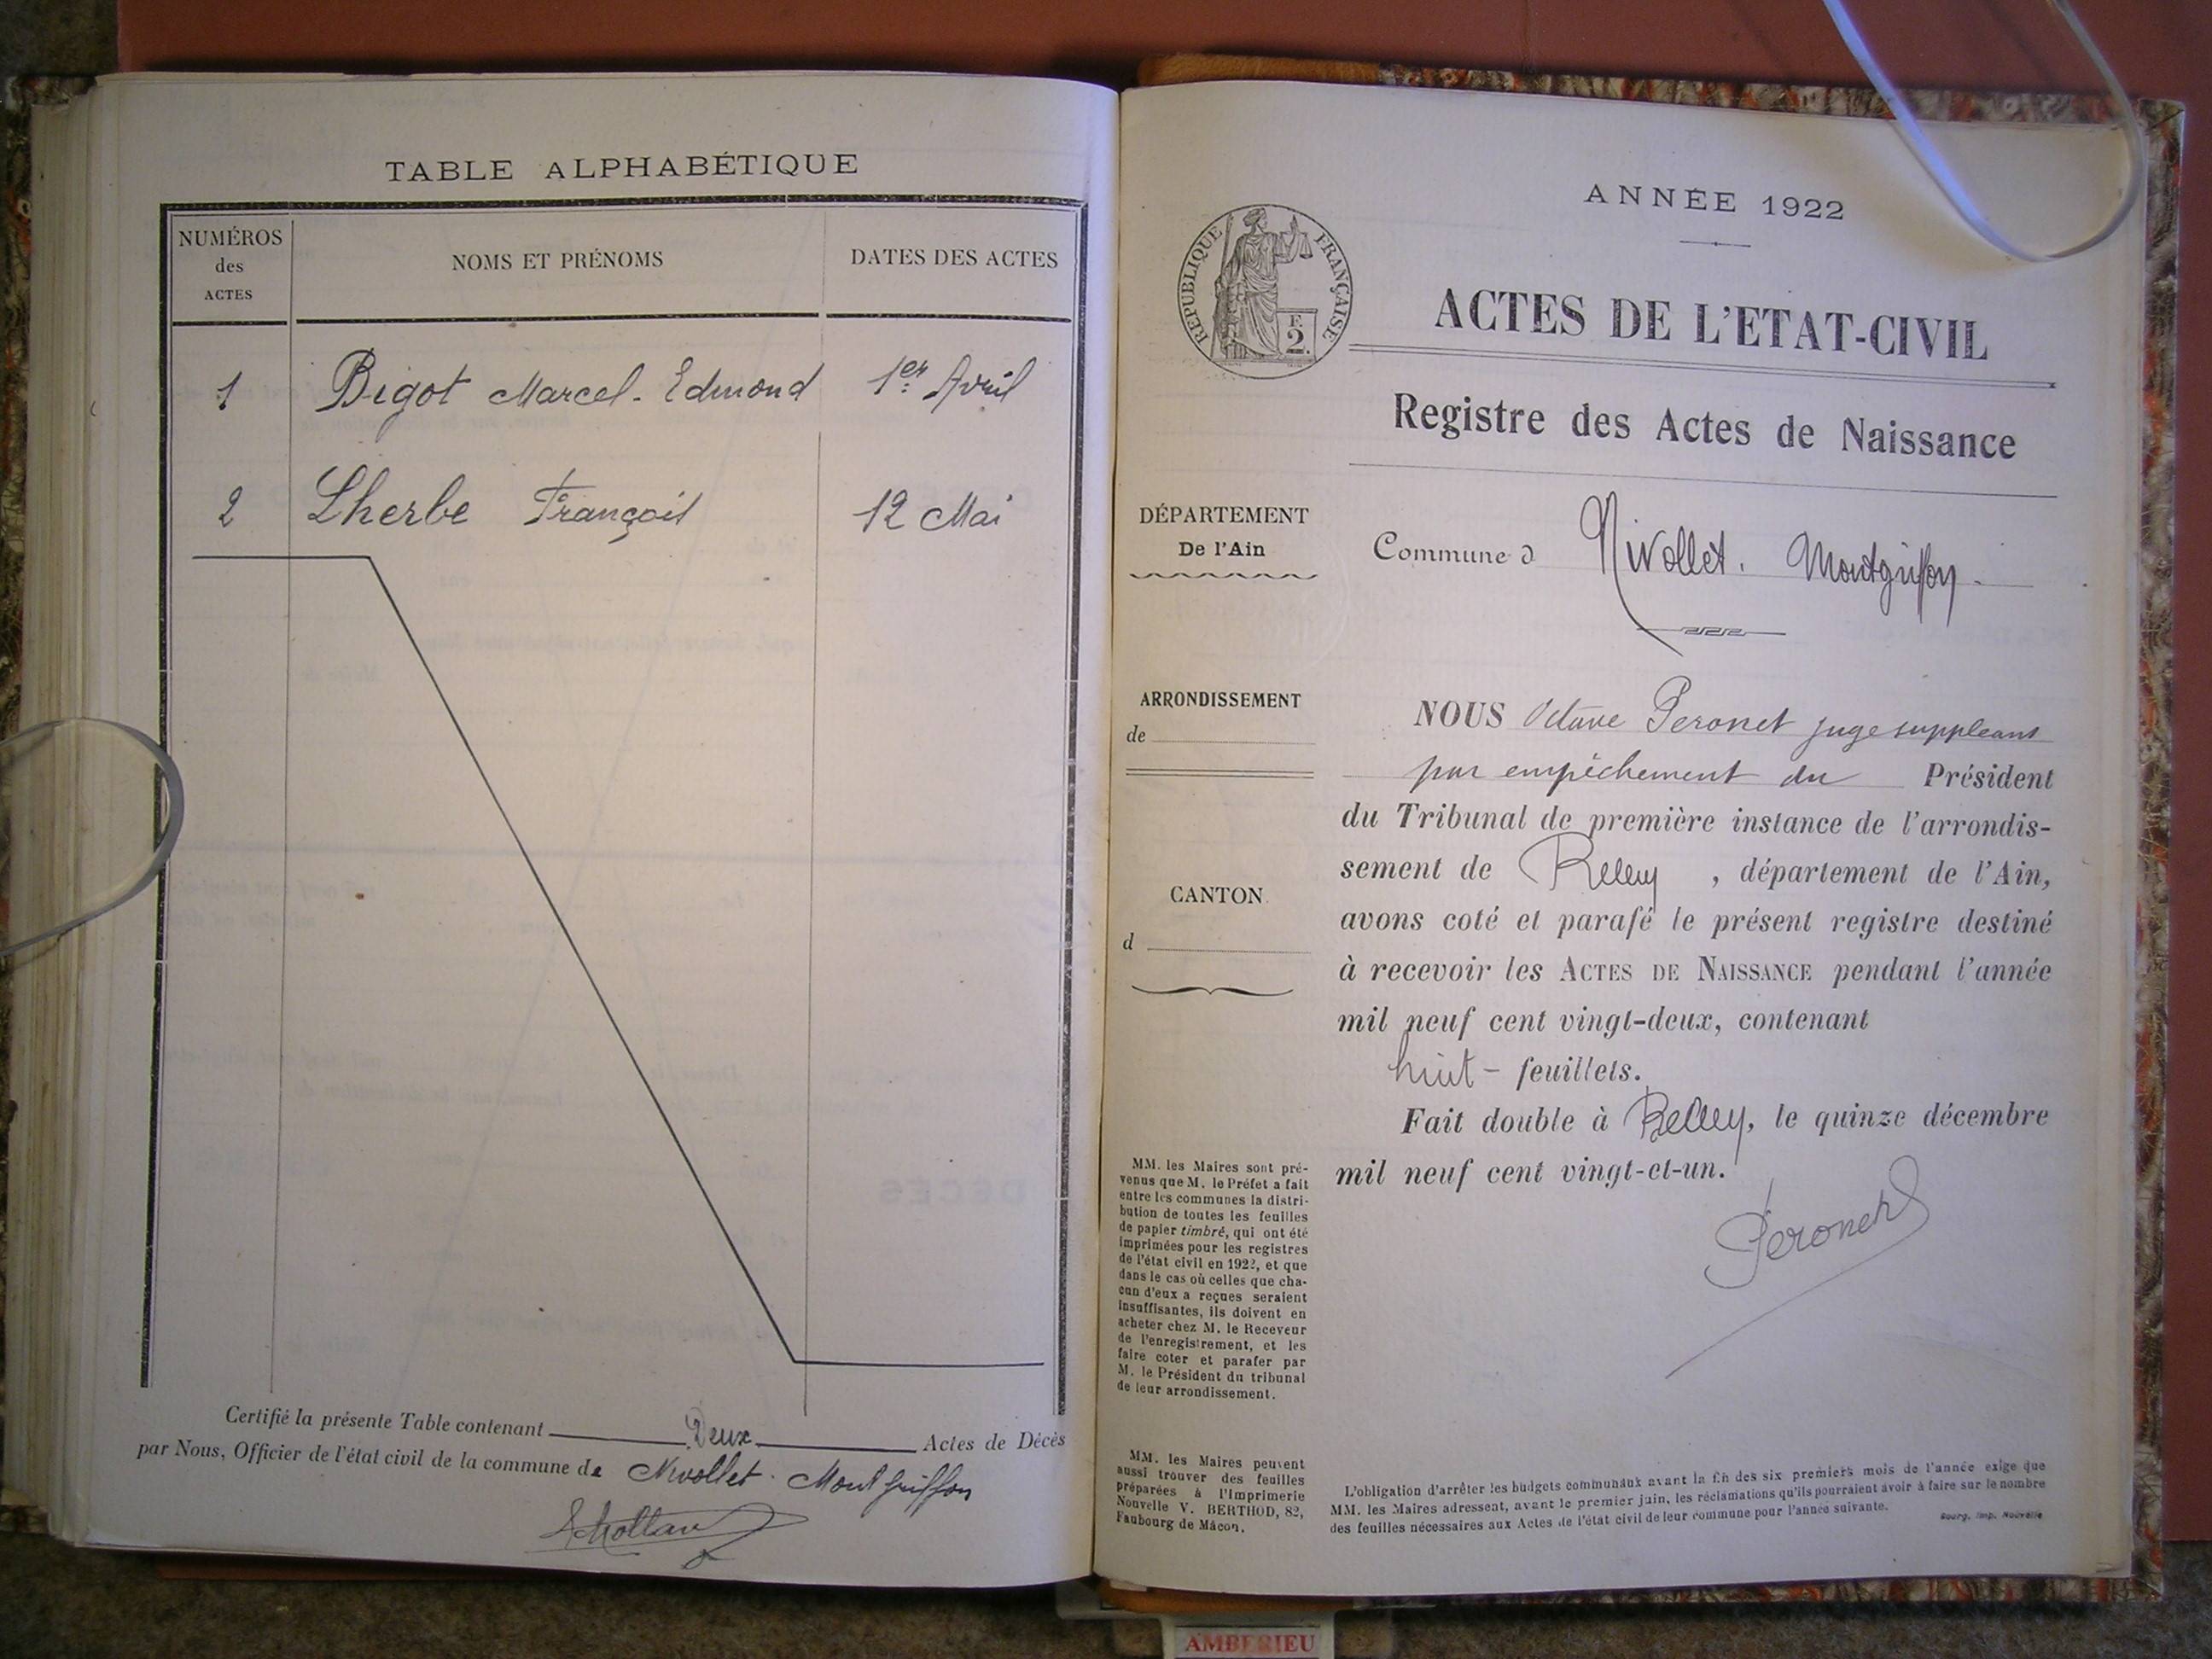 TABLE ALPHABÉTIQUE
NUMÉROS
des
ACTES
NOMS ET PRÉNOMS
DATES DES ACTES
1 Bigot Marcel-Edmond 1er Avril
2 Lherbe François 12 Mai
Certifié la présente Table contenant Deux Actes de Décès
par Nous, Officier de l'état civil de la commune de Nivollet-Montgriffon
ANNÉE 1922
RÉPUBLIQUE FRANÇAISE
F.
2.
ACTES DE L'ETAT-CIVIL
Registre des Actes de Naissance
DÉPARTEMENT
De l'Ain
Commune d Nivollet. Montgriffon.
ARRONDISSEMENT
de
CANTON
d
NOUS Octave Peronet juge suppleant
par empêchement du Président
du Tribunal de première instance de l'arrondis-
sement de Belley, département de l'Ain,
avons coté et parafé le présent registre destiné
à recevoir les ACTES DE NAISSANCE pendant l'année
mil neuf cent vingt-deux, contenant
huit - feuillets.
Fait double à Belley, le quinze décembre
mil neuf cent vingt-et-un.
Peronet
MM. les Maires sont pré-
venus que M. le Préfet a fait
entre les communes la distri-
bution de toutes les feuilles
de papier timbré, qui ont été
imprimées pour les registres
de l'état civil en 1922, et que
dans le cas où celles que cha-
cun d'eux a reçues seraient
insuffisantes, ils doivent en
acheter chez M. le Receveur
de l'enregistrement, et les
faire coter et parafer par
M. le Président du tribunal
de leur arrondissement.
MM. les Maires peuvent
aussi trouver des feuilles
préparées à l'Imprimerie
Nouvelle V. BERTHOD, 82,
Faubourg de Mâcon.
L'obligation d'arrêter les budgets communaux avant la fin des six premiers mois de l'année exige que
MM. les Maires adressent, avant le premier juin, les réclamations qu'ils pourraient avoir à faire sur le nombre
des feuilles nécessaires aux Actes de l'état civil de leur commune pour l'année suivante.
Bourg, Imp. Nouvelle
AMBERIEU